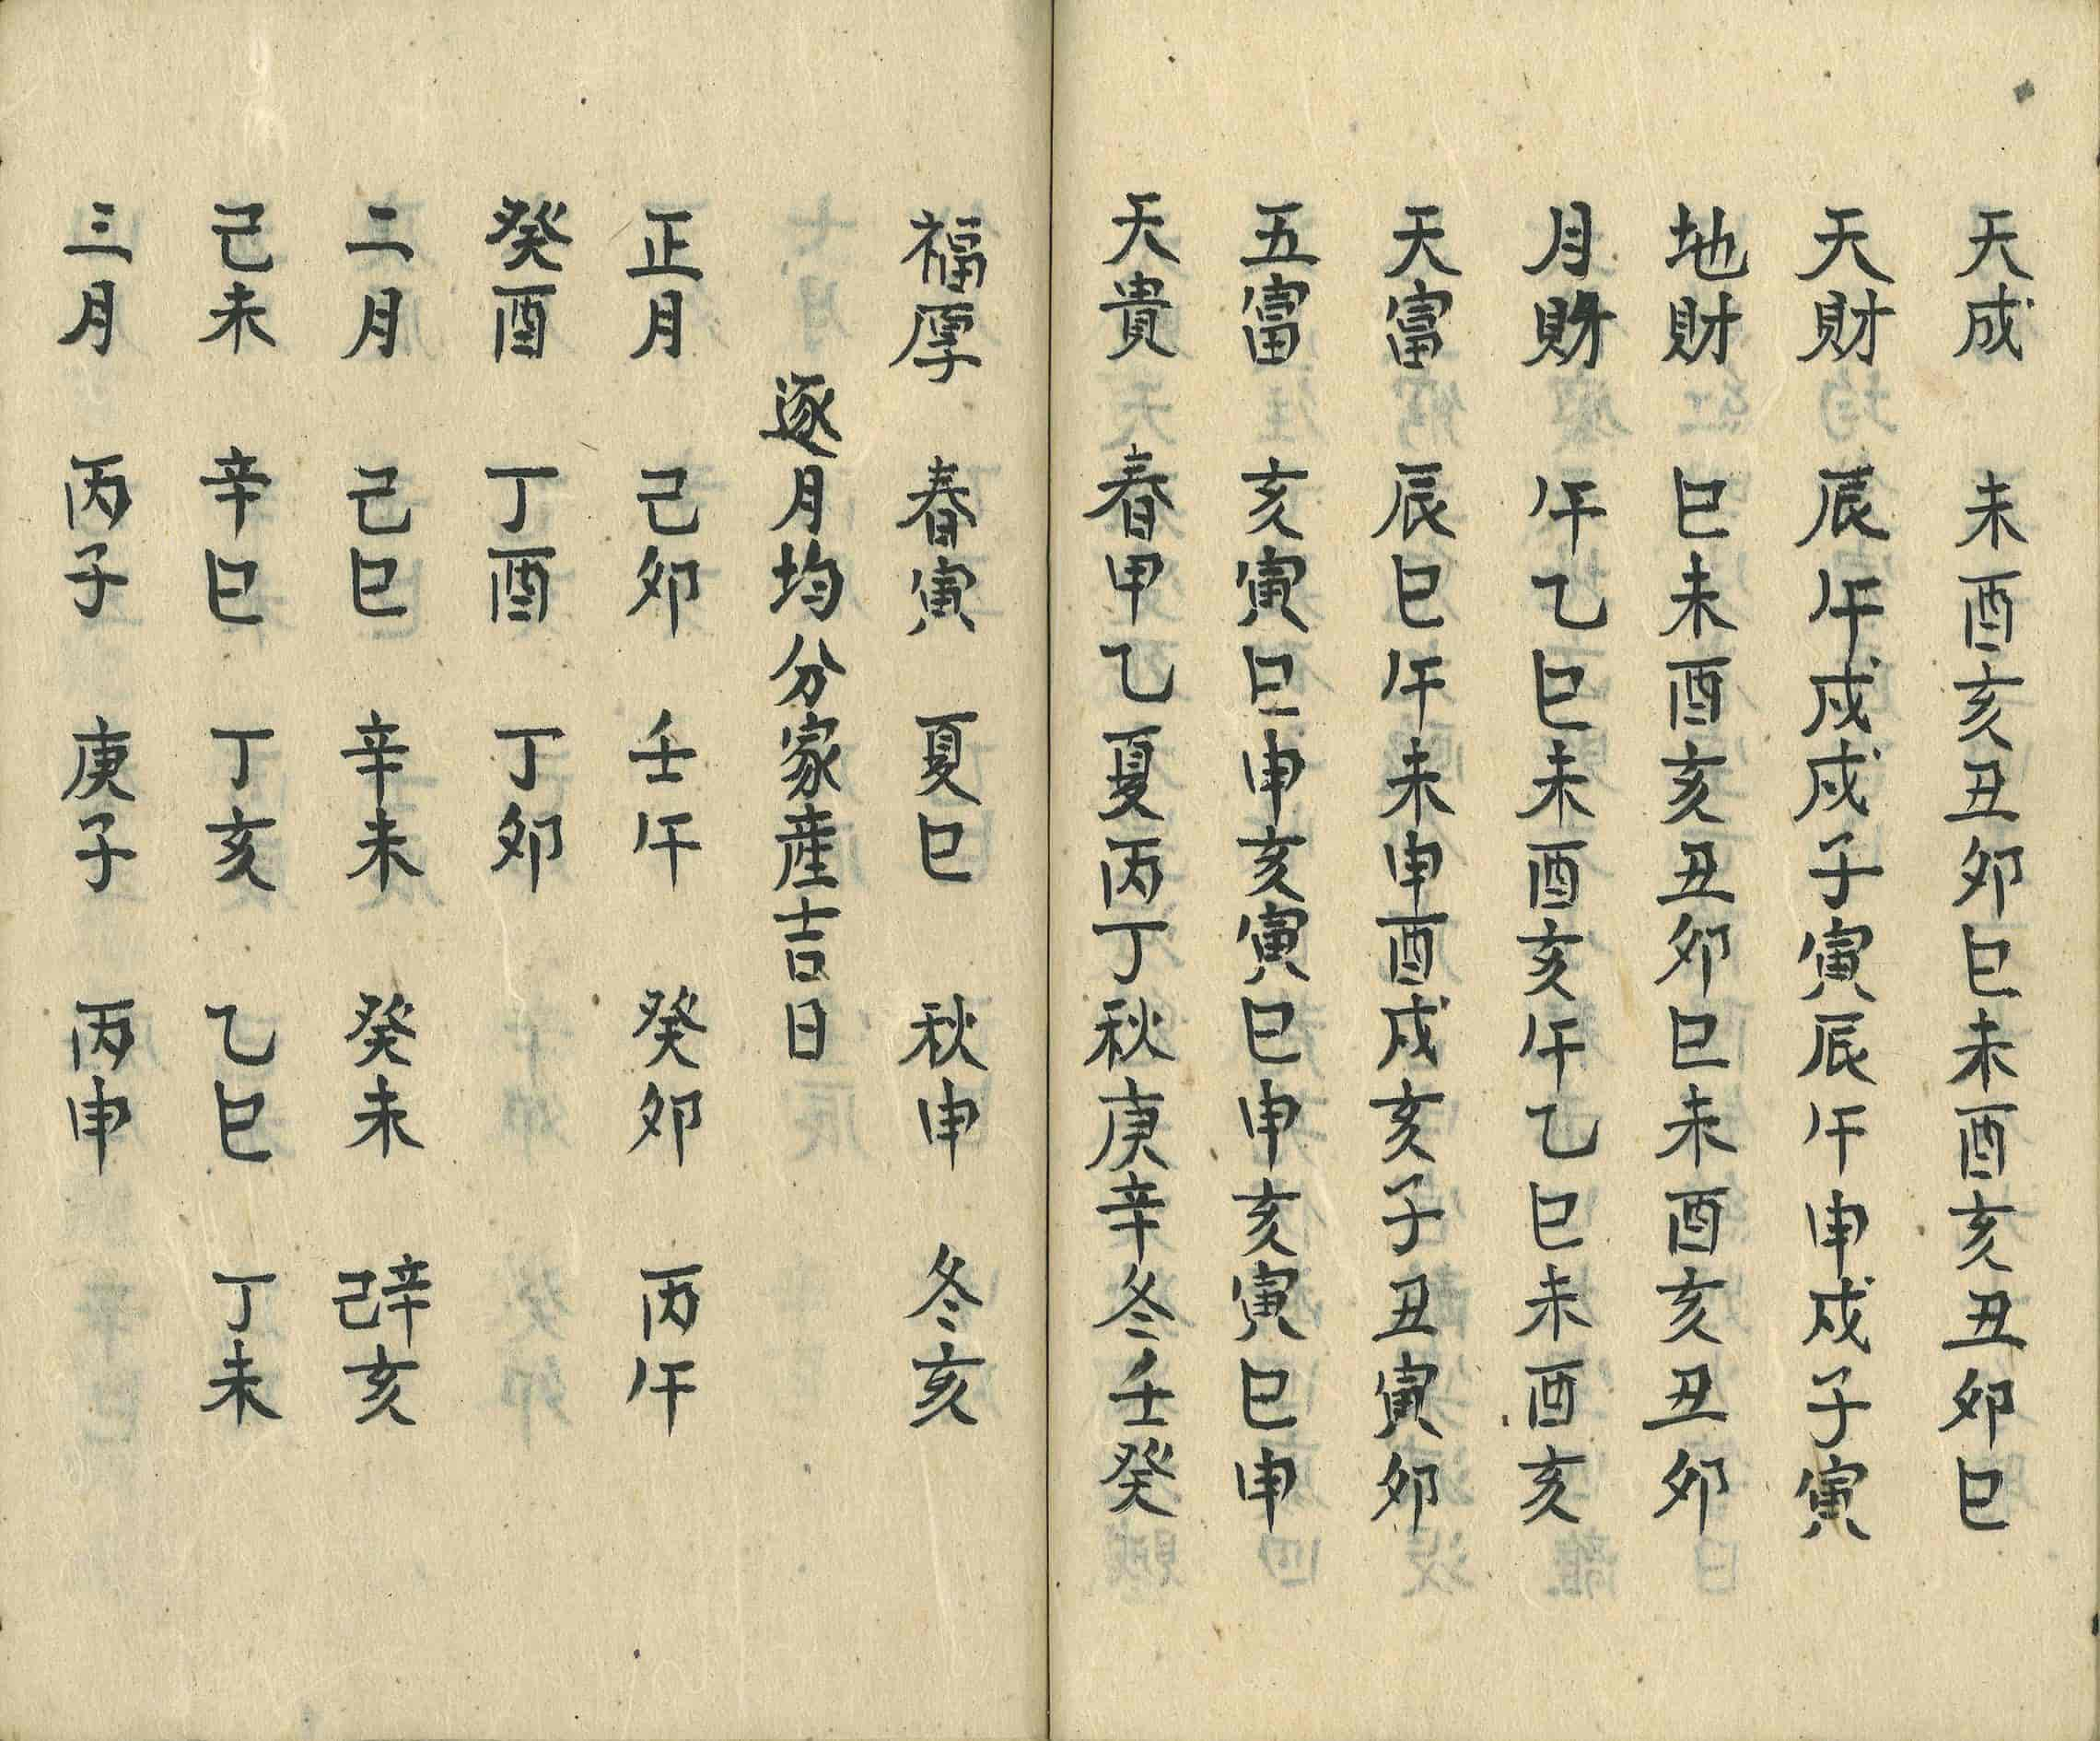 天成 未酉亥丑卯巳未酉亥丑卯巳
天財 辰午戌戌子寅辰午申戌子寅
地財 巳未酉亥丑卯巳未酉亥丑卯
月財 午乙巳未酉亥午乙巳未酉亥
天富 辰巳午未申酉戌亥子丑寅卯
五富 亥寅巳申亥寅巳申亥寅巳申
天貴 春甲乙夏丙丁秋庚辛冬壬癸
福厚 春寅 夏巳 秋申 冬亥
逐月均分家產吉日
正月 己卯 壬午 癸卯 丙午
癸酉 丁酉 丁卯
二月 己巳 辛未 癸未 辛己亥
己未 辛巳 丁亥 乙巳 丁未
三月 丙子 庚子 丙申